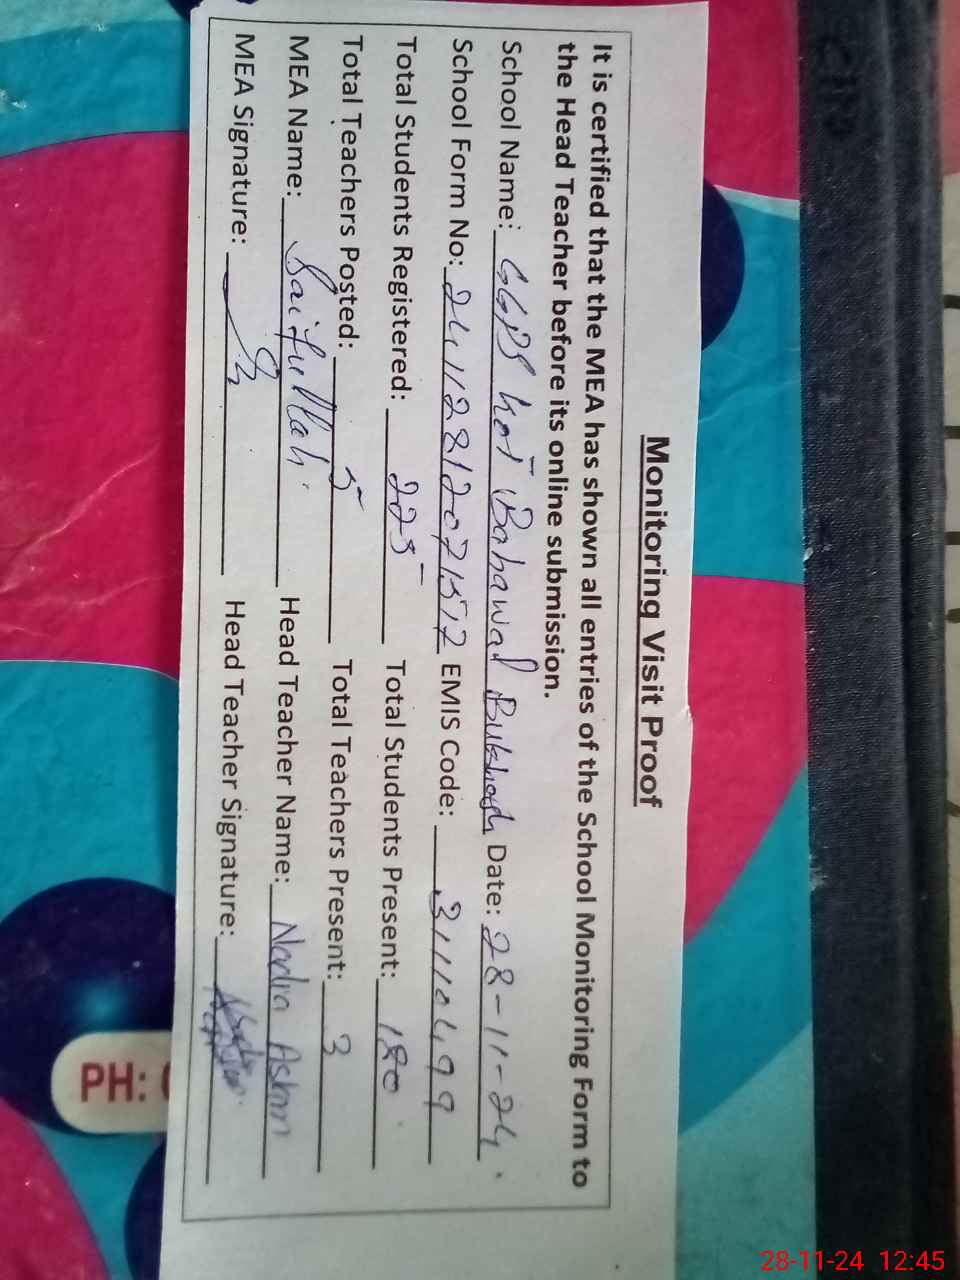 Monitoring Visit Proof
It is certified that the MEA has shown all entries of the School Monitoring Form to
the Head Teacher before its online submission.
School Name: GGPS kot Bahawal Bukhsh Date: 28-11-24
School Form No: 241128120721572 EMIS Code: 31110499
Total Students Registered: 225 Total Students Present: 180
Total Teachers Posted: 5 Total Teachers Present: 3
MEA Name: Saifullah Head Teacher Name: Nadia
MEA Signature: Head Teacher Signature:
PH:
28-11-24 12:45